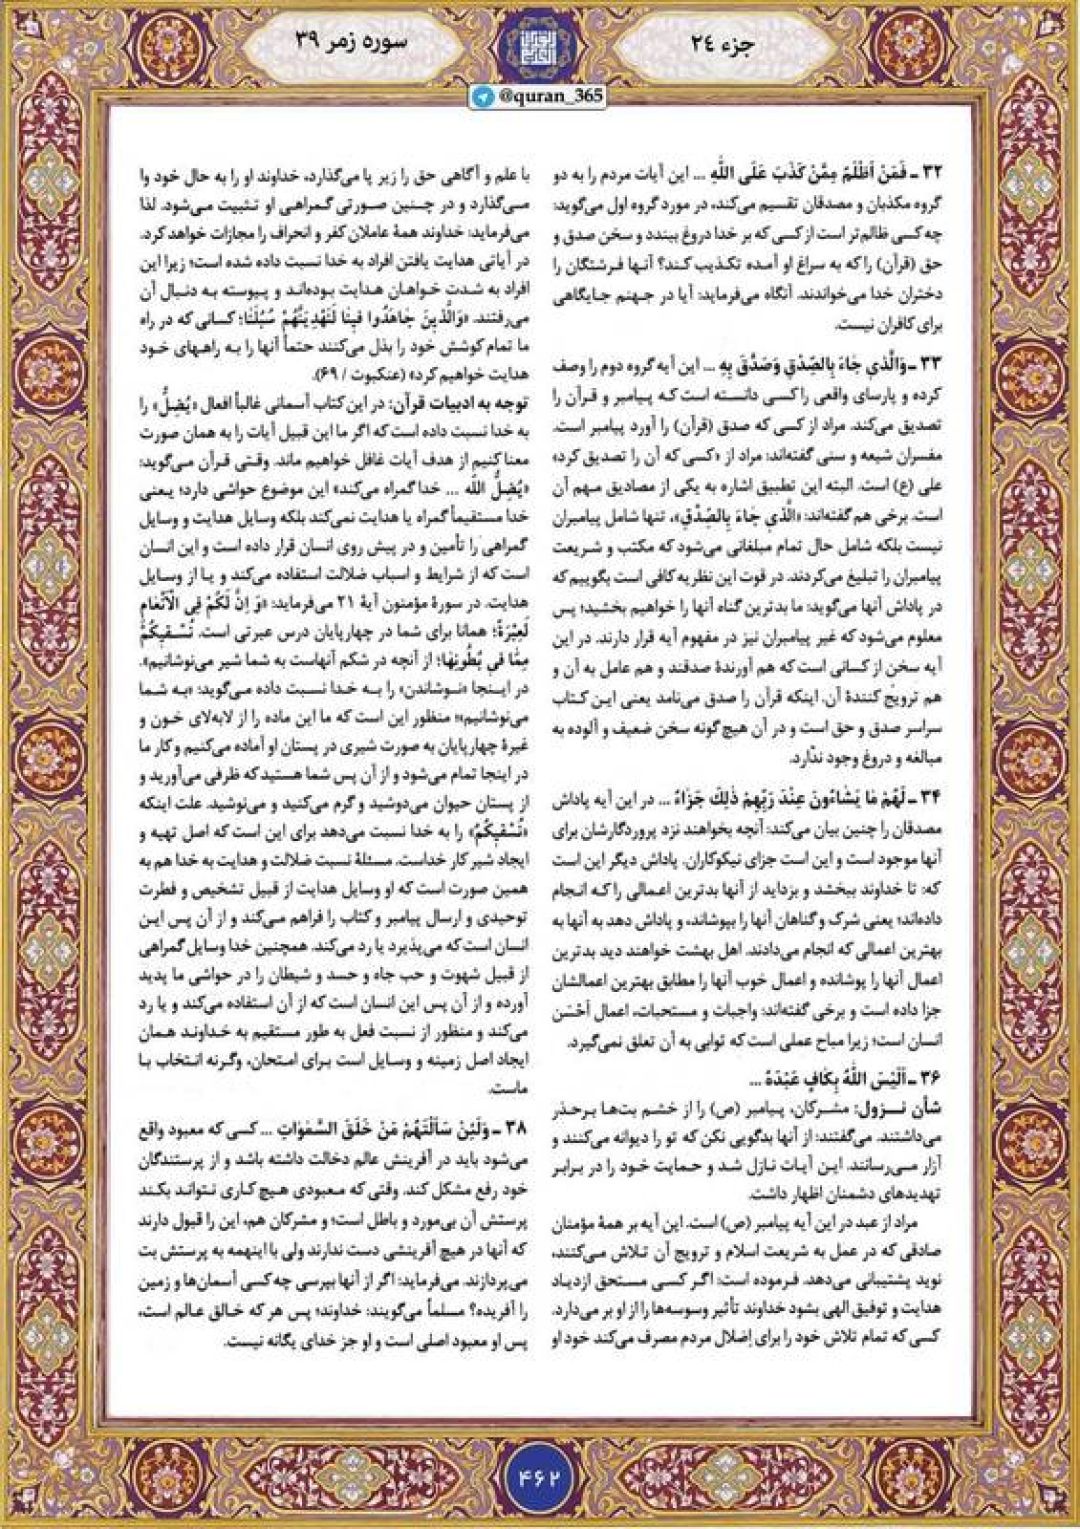 جزء ۲٤
سوره زمر ۳۹
@quran_365
۳۲ـ فَمَنْ اَظْلَمُ مِمَّنْ كَذَبَ عَلَى اللّٰهِ ... این آیات مردم را به دو
گروه مکذبان و مصدقان تقسیم می‌کند، در مورد گروه اول می‌گوید:
چه کسی ظالم‌تر است از کسی که بر خدا دروغ ببندد و سخن صدق و
حق (قرآن) را که به سراغ او آمده تکذیب کند؟ آنها فرشتگان را
دختران خدا می‌خواندند. آنگاه می‌فرماید: آیا در جهنم جایگاهی
برای کافران نیست.
۳۳ـ وَالَّذي جَاءَ بِالصِّدْقِ وَصَدَّقَ بِهِ ... این آیه گروه دوم را وصف
کرده و پارسای واقعی را کسی دانسته است که پیامبر و قرآن را
تصدیق می‌کند. مراد از کسی که صدق (قرآن) را آورد پیامبر است.
مفسران شیعه و سنی گفته‌اند: مراد از «کسی که آن را تصدیق کرد»
علی (ع) است. البته این تطبیق اشاره به یکی از مصادیق مهم آن
است. برخی هم گفته‌اند: «الَّذي جَاءَ بِالصِّدْقِ»، تنها شامل پیامبران
نیست بلکه شامل حال تمام مبلغانی می‌شود که مکتب و شریعت
پیامبران را تبلیغ می‌کردند. در قوت این نظریه کافی است بگوییم که
در پاداش آنها می‌گوید: ما بدترین گناه آنها را خواهیم بخشید؛ پس
معلوم می‌شود که غیر پیامبران نیز در مفهوم آیه قرار دارند. در این
آیه سخن از کسانی است که هم آورندهٔ صدقند و هم عامل به آن و
هم ترویج کنندهٔ آن. اینکه قرآن را صدق می‌نامد یعنی این کتاب
سراسر صدق و حق است و در آن هیچ گونه سخن ضعیف و آلوده به
مبالغه و دروغ وجود ندارد.
۳۴ـ لَهُمْ مَا يَشَاءُونَ عِنْدَ رَبِّهِمْ ذٰلِكَ جَزَاءُ ... در این آیه پاداش
مصدقان را چنین بیان می‌کند: آنچه بخواهند نزد پروردگارشان برای
آنها موجود است و این است جزای نیکوکاران. پاداش دیگر این است
که: تا خداوند ببخشد و بزداید از آنها بدترین اعمالی را که انجام
داده‌اند؛ یعنی شرک و گناهان آنها را بپوشاند، و پاداش دهد به آنها به
بهترین اعمالی که انجام می‌دادند. اهل بهشت خواهند دید بدترین
اعمال آنها را پوشانده و اعمال خوب آنها را مطابق بهترین اعمالشان
جزا داده است و برخی گفته‌اند: واجبات و مستحبات، اعمال أحْسَن
انسان است؛ زیرا مباح عملی است که ثوابی به آن تعلق نمی‌گیرد.
۳۶ـ اَلَيْسَ اللّٰهُ بِكَافٍ عَبْدَهُ ...
شأن نزول: مشرکان، پیامبر (ص) را از خشم بت‌ها برحذر
می‌داشتند. می‌گفتند: از آنها بدگویی نکن که تو را دیوانه می‌کنند و
آزار می‌رسانند. این آیات نازل شد و حمایت خود را در برابر
تهدیدهای دشمنان اظهار داشت.
مراد از عبد در این آیه پیامبر (ص) است. این آیه بر همهٔ مؤمنان
صادقی که در عمل به شریعت اسلام و ترویج آن تلاش می‌کنند،
نوید پشتیبانی می‌دهد. فرموده است: اگر کسی مستحق ازدیاد
هدایت و توفیق الهی بشود خداوند تأثیر وسوسه‌ها را از او بر می‌دارد.
کسی که تمام تلاش خود را برای إضلال مردم مصرف می‌کند خود او
با علم و آگاهی حق را زیر پا می‌گذارد، خداوند او را به حال خود وا
می‌گذارد و در چنین صورتی گمراهی او تثبیت می‌شود. لذا
می‌فرماید: خداوند همهٔ عاملان کفر و انحراف را مجازات خواهد کرد.
در آیاتی هدایت یافتن افراد به خدا نسبت داده شده است؛ زیرا این
افراد به شدت خواهان هدایت بوده‌اند و پیوسته به دنبال آن
می‌رفتند. «وَالَّذِينَ جَاهَدُوا فِينَا لَنَهْدِيَنَّهُمْ سُبُلَنَا؛ کسانی که در راه
ما تمام کوشش خود را بذل می‌کنند حتماً آنها را به راههای خود
هدایت خواهیم کرد» (عنکبوت / ۶۹).
توجه به ادبیات قرآن: در این کتاب آسمانی غالباً افعال «يُضِلُّ» را
به خدا نسبت داده است که اگر ما این قبیل آیات را به همان صورت
معنا کنیم از هدف آیات غافل خواهیم ماند. وقتی قرآن می‌گوید:
«يُضِلُّ اللّٰه ... خدا گمراه می‌کند» این موضوع حواشی دارد؛ یعنی
خدا مستقیماً گمراه یا هدایت نمی‌کند بلکه وسایل هدایت و وسایل
گمراهی را تأمین و در پیش روی انسان قرار داده است و این انسان
است که از شرایط و اسباب ضلالت استفاده می‌کند و یا از وسایل
هدایت. در سورهٔ مؤمنون آیهٔ ۲۱ می‌فرماید: «وَ اِنَّ لَكُمْ فِي الْاَنْعَامِ
لَعِبْرَةً؛ همانا برای شما در چهارپایان درس عبرتی است. نُسْقيكُمْ
مِمَّا في بُطُونِهَا؛ از آنچه در شکم آنهاست به شما شیر می‌نوشانیم».
در اینجا «نوشاندن» را به خدا نسبت داده می‌گوید: «به شما
می‌نوشانیم»؛ منظور این است که ما این ماده را از لابه‌لای خون و
غیرهٔ چهارپایان به صورت شیری در پستان او آماده می‌کنیم و کار ما
در اینجا تمام می‌شود و از آن پس شما هستید که ظرفی می‌آورید و
از پستان حیوان می‌دوشید و گرم می‌کنید و می‌نوشید. علت اینکه
«نُسْقيكُمْ» را به خدا نسبت می‌دهد برای این است که اصل تهیه و
ایجاد شیر کار خداست. مسئلهٔ نسبت ضلالت و هدایت به خدا هم به
همین صورت است که او وسایل هدایت از قبیل تشخیص و فطرت
توحیدی و ارسال پیامبر و کتاب را فراهم می‌کند و از آن پس این
انسان است که می‌پذیرد یا رد می‌کند. همچنین خدا وسایل گمراهی
از قبیل شهوت و حب جاه و حسد و شیطان را در حواشی ما پدید
آورده و از آن پس این انسان است که از آن استفاده می‌کند و یا رد
می‌کند و منظور از نسبت فعل به طور مستقیم به خداوند همان
ایجاد اصل زمینه و وسایل است برای امتحان، وگرنه انتخاب با
ماست.
۳۸ـ وَلَئِنْ سَاَلْتَهُمْ مَنْ خَلَقَ السَّمٰوَاتِ ... کسی که معبود واقع
می‌شود باید در آفرینش عالم دخالت داشته باشد و از پرستندگان
خود رفع مشکل کند. وقتی که معبودی هیچ کاری نتواند بکند
پرستش آن بی‌مورد و باطل است؛ و مشرکان هم، این را قبول دارند
که آنها در هیچ آفرینشی دست ندارند ولی با اینهمه به پرستش بت
می‌پردازند. می‌فرماید: اگر از آنها بپرسی چه کسی آسمان‌ها و زمین
را آفریده؟ مسلماً می‌گویند: خداوند؛ پس هر که خالق عالم است،
پس او معبود اصلی است و او جز خدای یگانه نیست.
۴۶۲